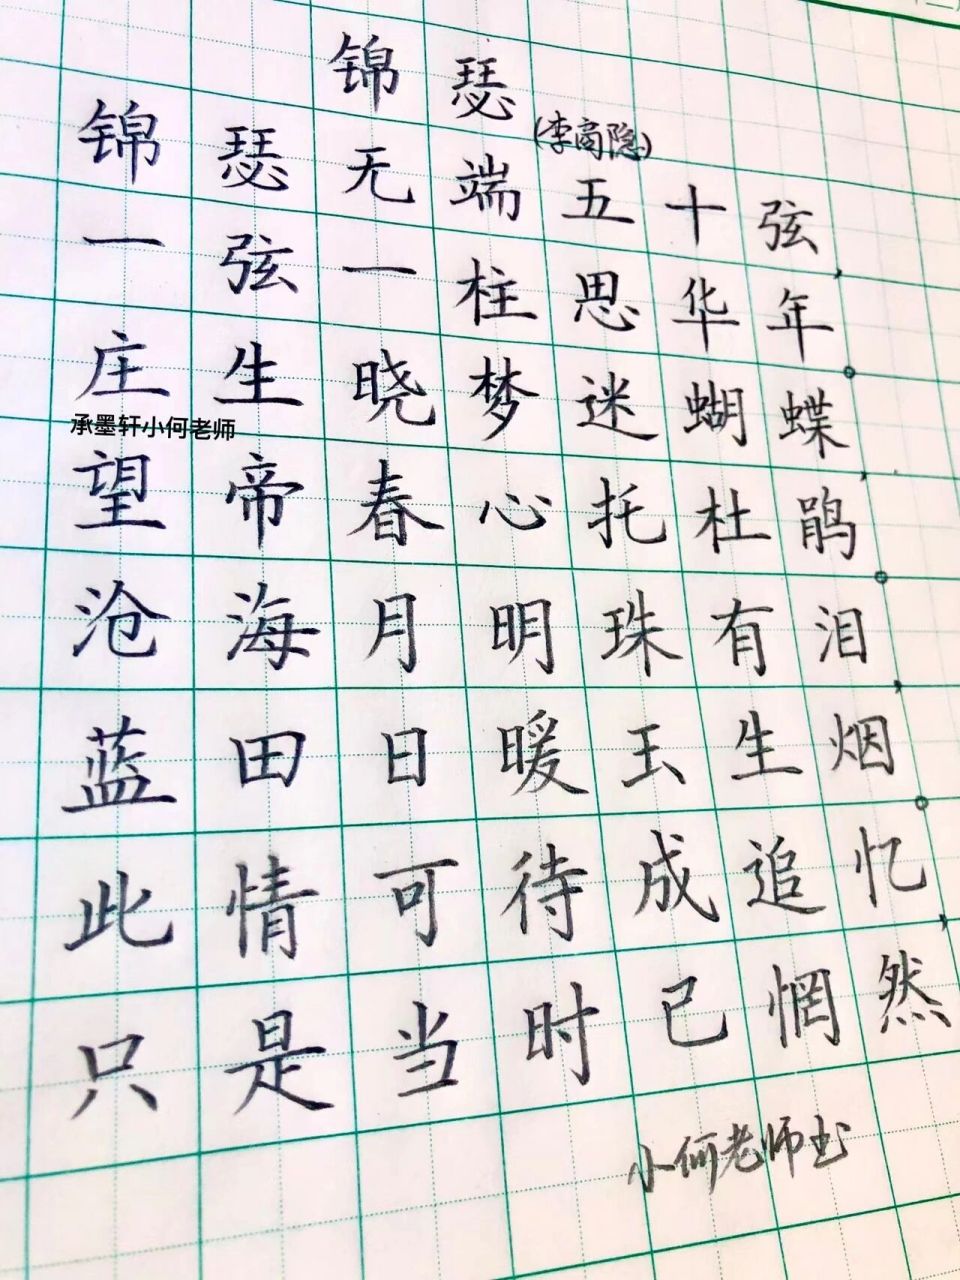 锦瑟
(李商隐)
锦瑟无端五十弦,
一弦一柱思华年。
庄生晓梦迷蝴蝶,
承墨轩小何老师
望帝春心托杜鹃。
沧海月明珠有泪,
蓝田日暖玉生烟。
此情可待成追忆,
只是当时已惘然
小何老师书